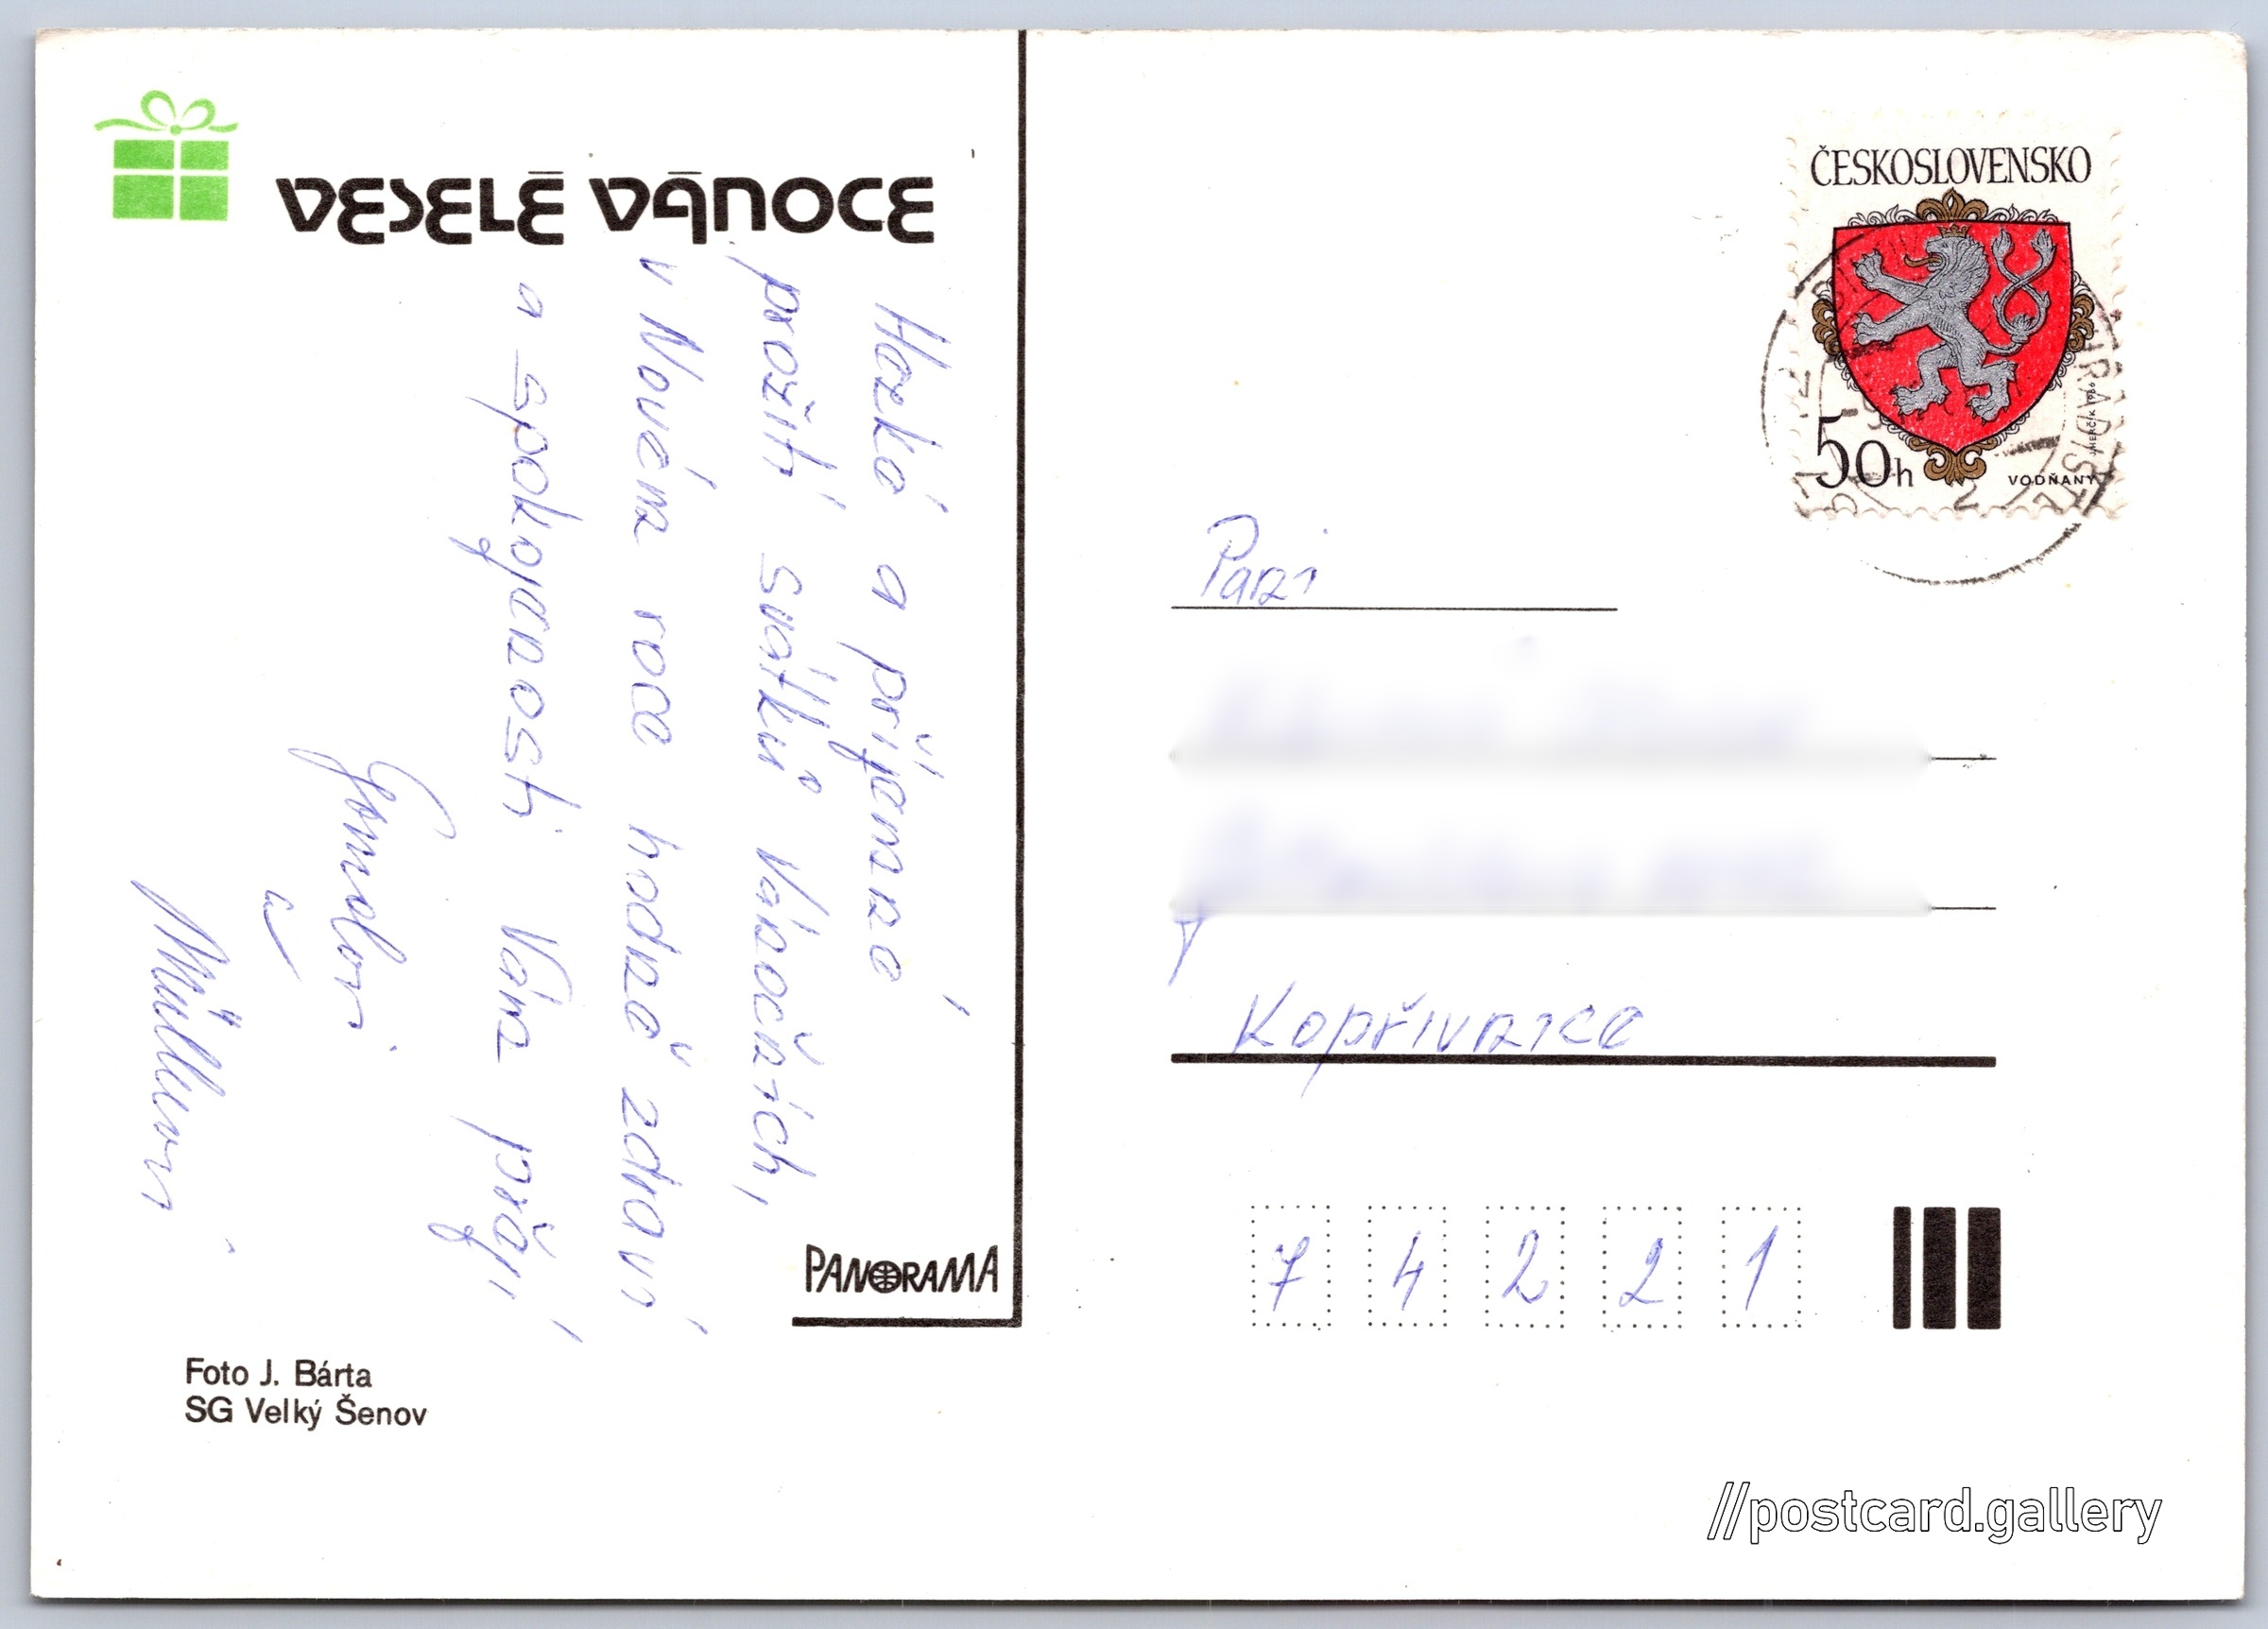 VESELÉ VÁNOCE
Hezké a příjemné
prožití svátků Vánočních,
v Novém roce hodně zdraví
a spokojenosti Vám přejí
a
Müllerovi
PANORAMA
Foto J. Bárta
SG Velký Šenov
ČESKOSLOVENSKO
50h
VODŇANY
Paní
Kopřivnice
7 4 2 2 1
//postcard.gallery